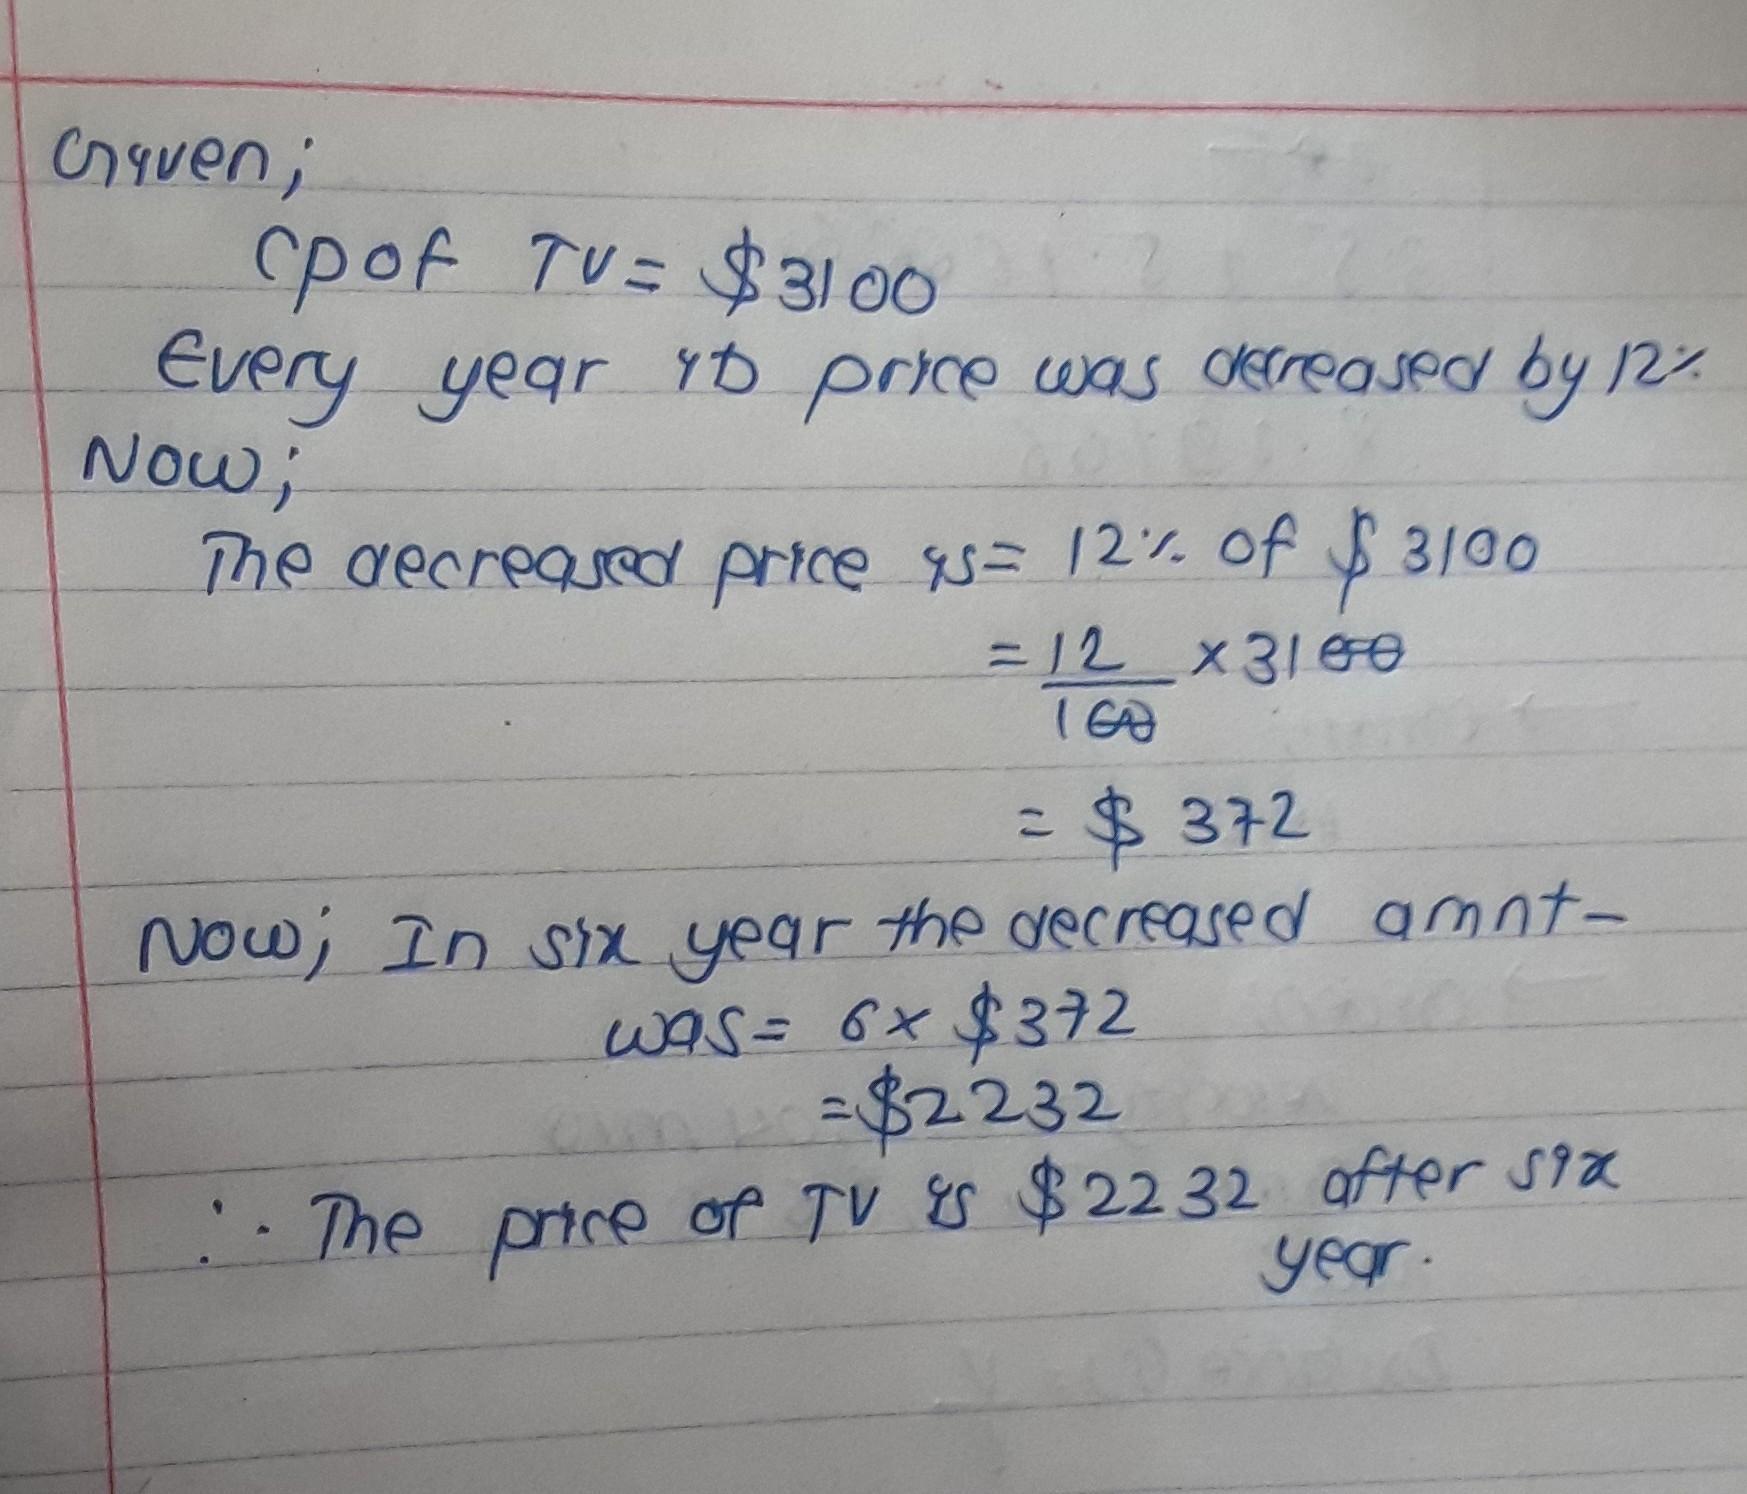 Given;
Cp of TV = $3100
Every year its price was decreased by 12%
Now;
The decreased price is = 12% of $3100
= 12/100 × 3100
= $ 372
Now; In six year the decreased amnt-
was = 6 x $372
= $2232
∴ The price of TV is $2232 after six
year.